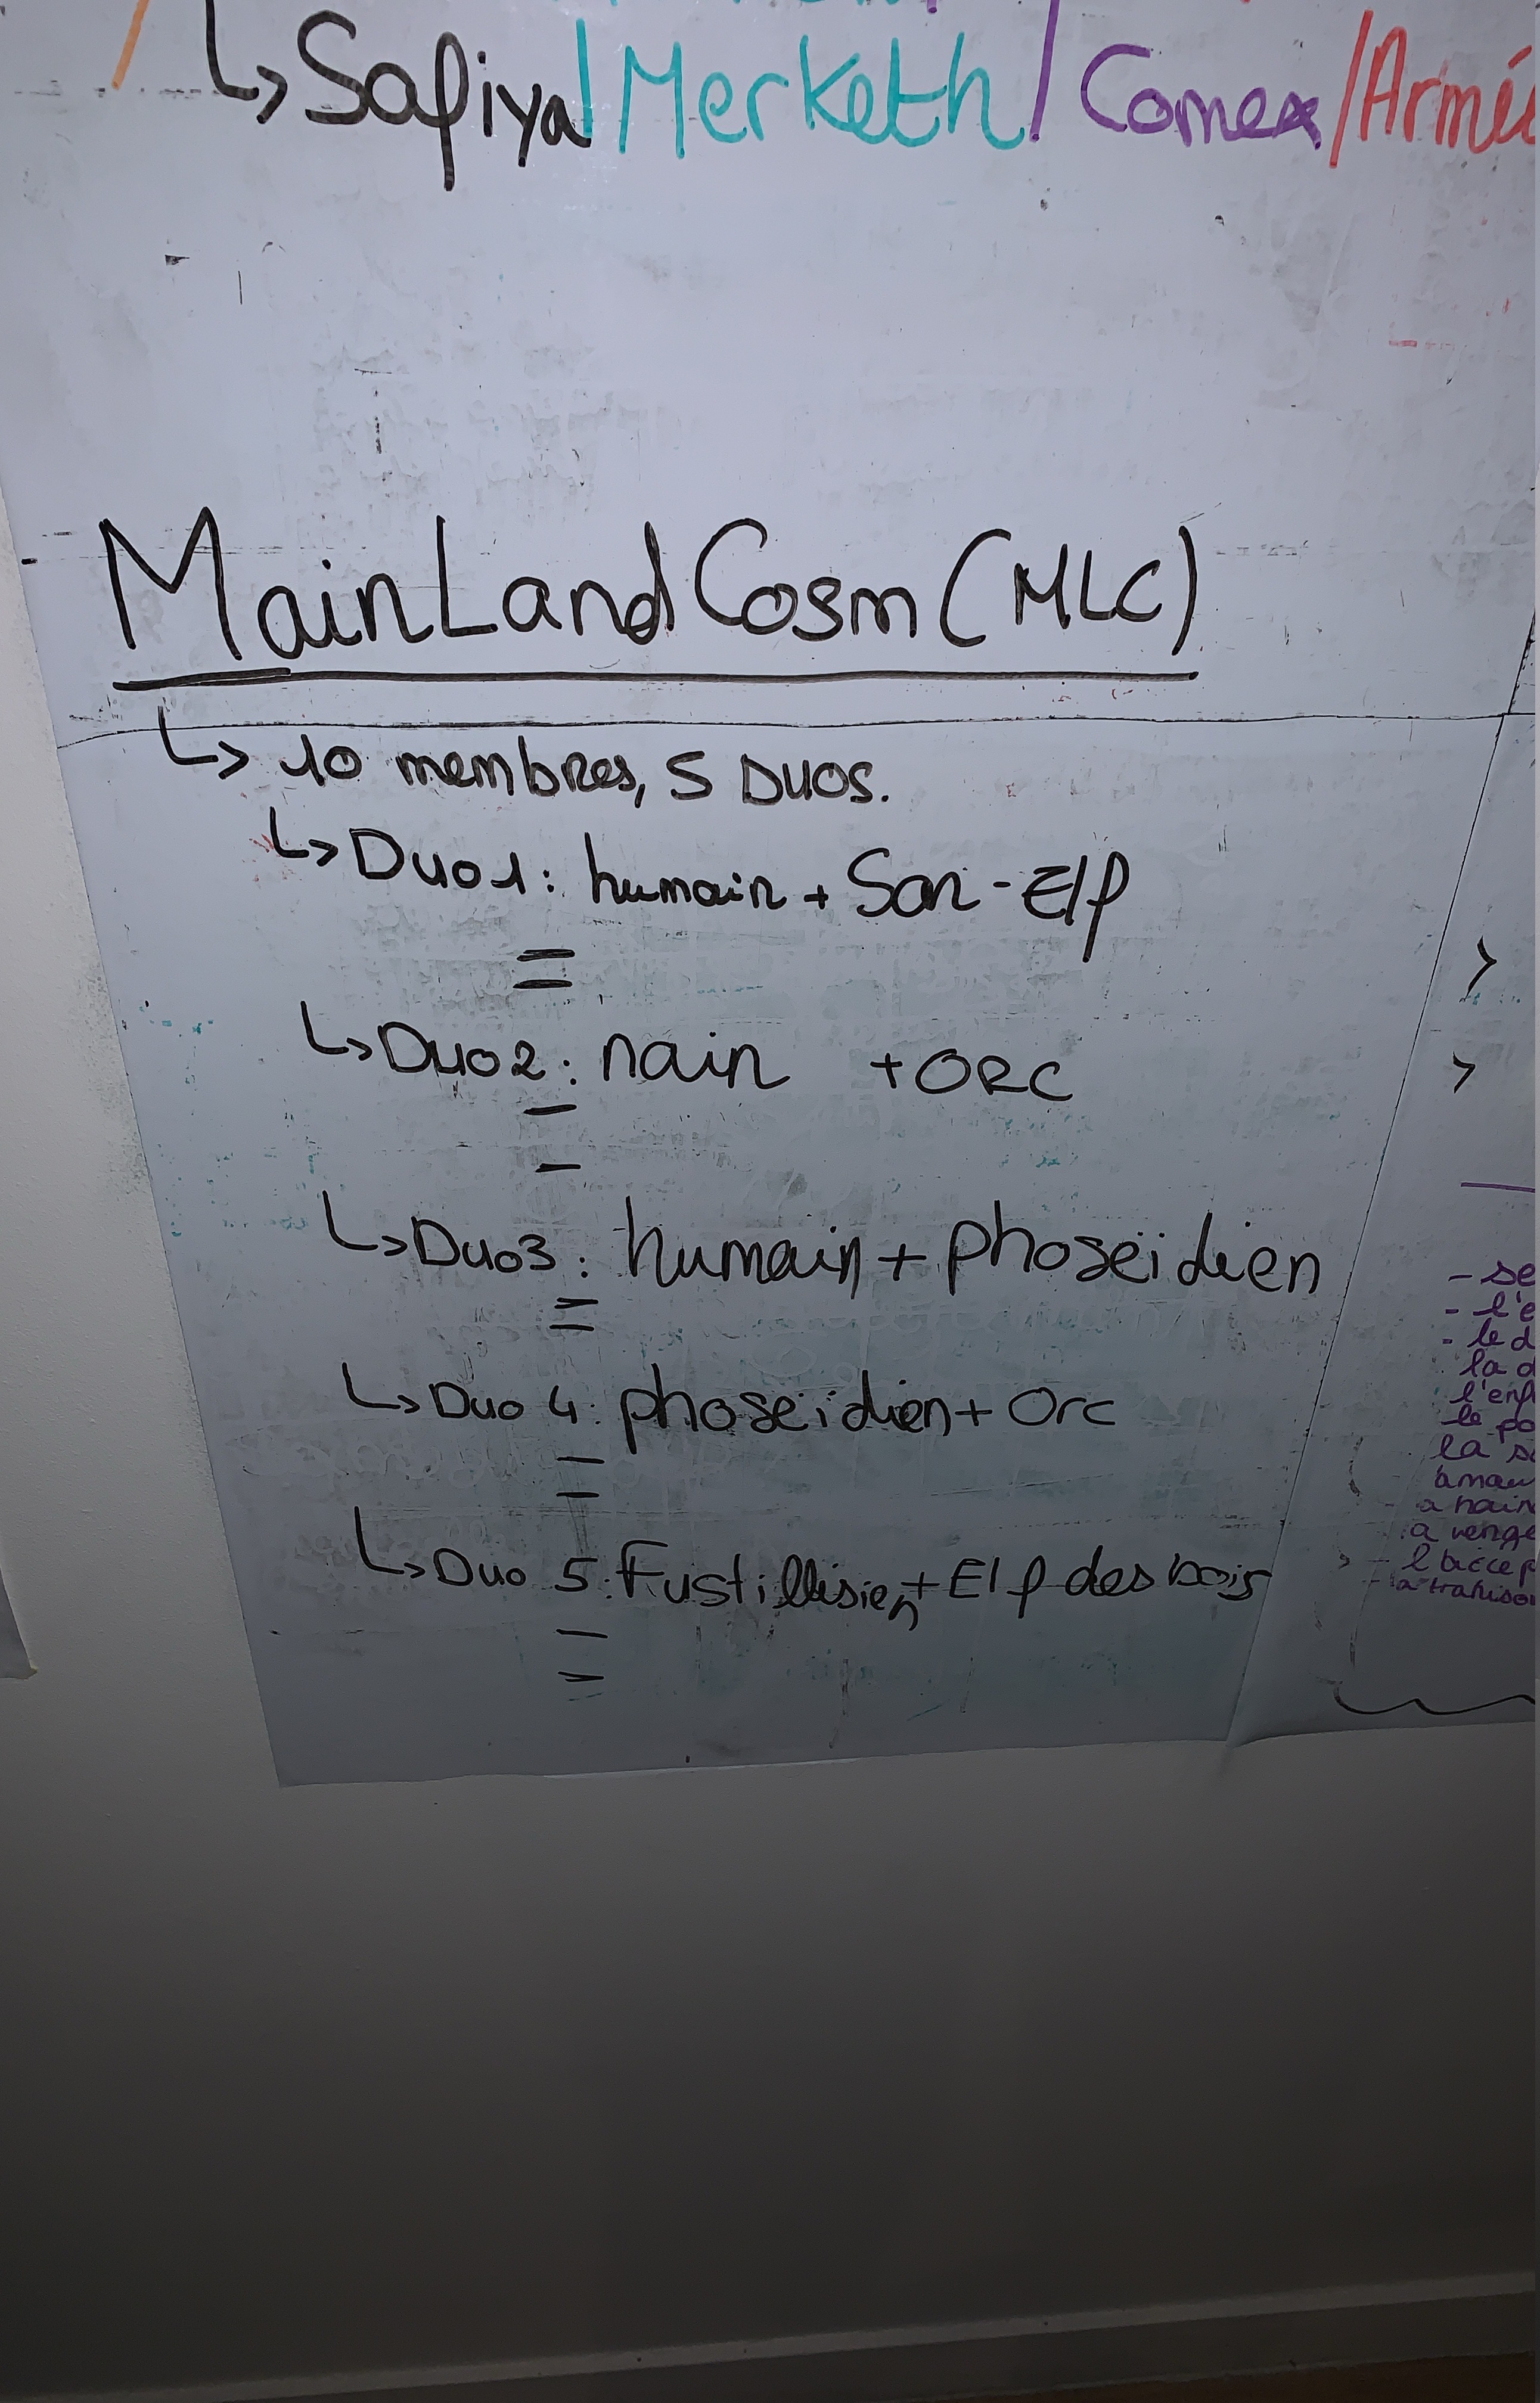 ↳ Safiya / Merketh / Comex / Armé
MainLandCosm (MLC)
↳ 10 membres, 5 DUOS.
↳ Duo 1 : humain + San-Elf
=
↳ Duo 2 : nain + ORC
-
-
↳ Duo 3 : humain + phoseïdien
=
↳ Duo 4 : phoseïdien + Orc
-
-
↳ Duo 5 : Fustillisien + Elf des bois
-
-
- se
- l'e
- le d
la d
l'enf
le po
la s
a nain
a venge